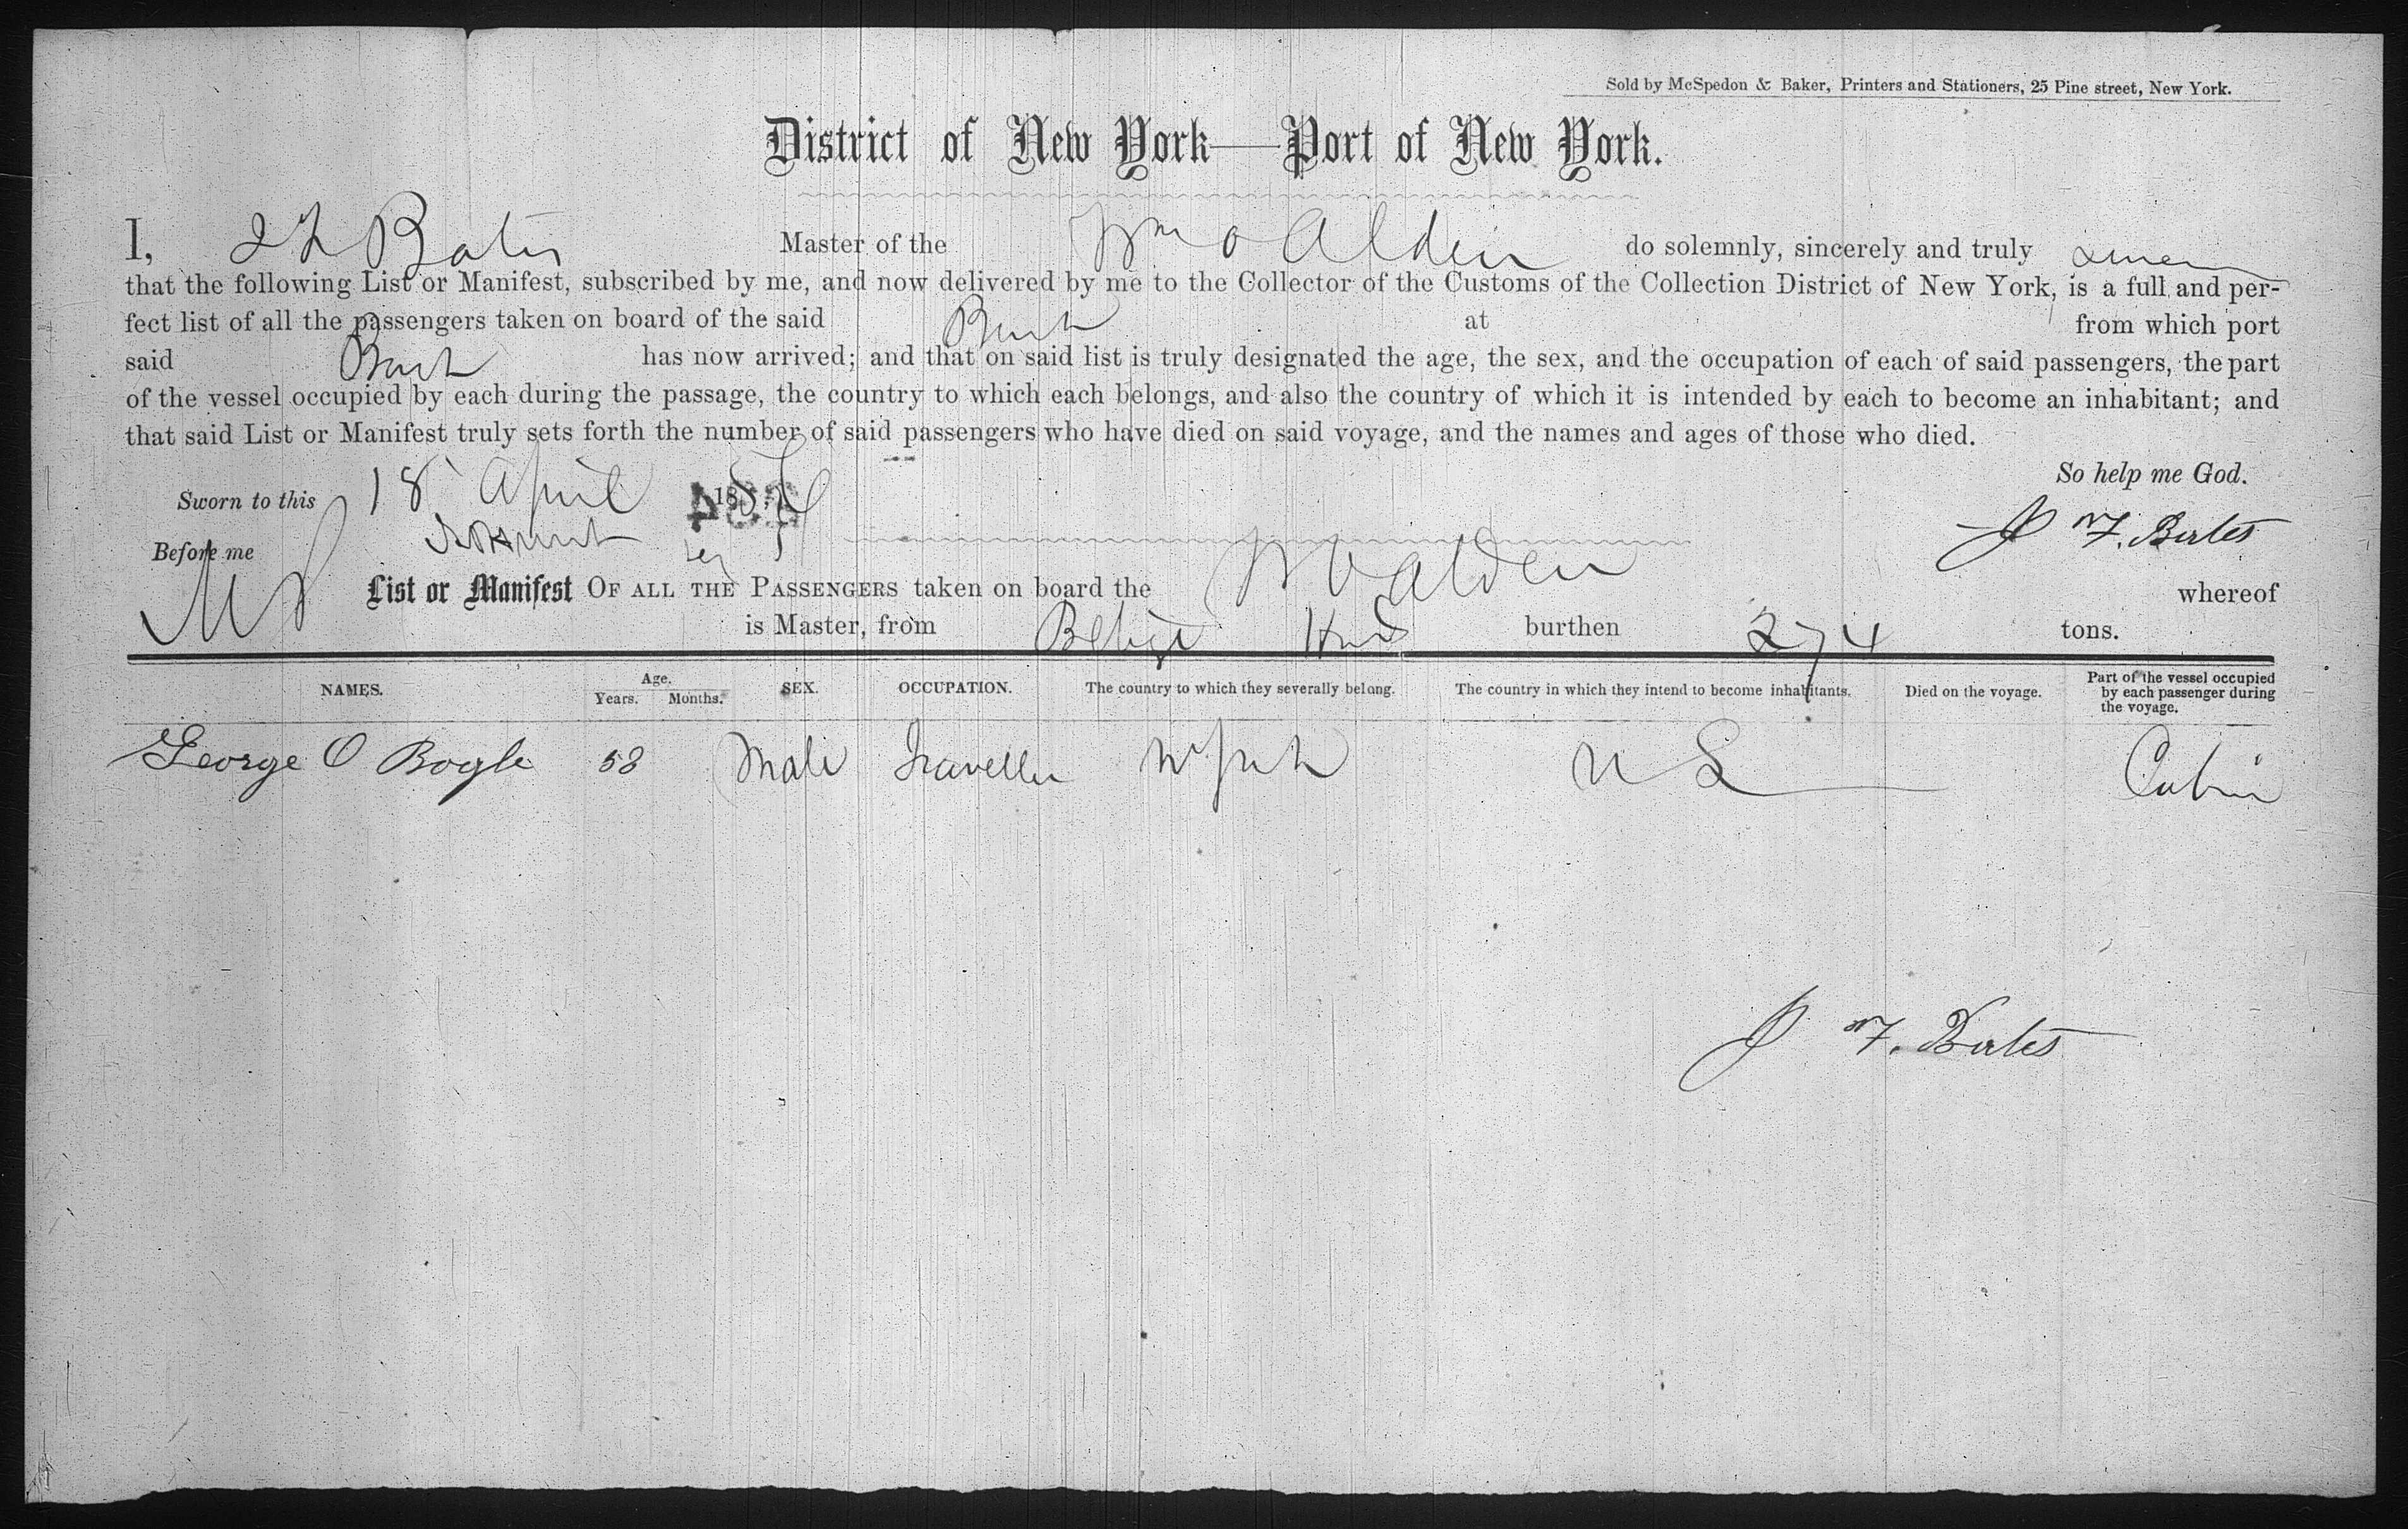 Sold by McSpedon & Baker, Printers and Stationers, 25 Pine street, New York.
District of New York—Port of New York.
I, Bates Master of the Wm O Alden do solemnly, sincerely and truly swear
that the following List or Manifest, subscribed by me, and now delivered by me to the Collector of the Customs of the Collection District of New York, is a full and per-
fect list of all the passengers taken on board of the said Bark at from which port
said Bark has now arrived; and that on said list is truly designated the age, the sex, and the occupation of each of said passengers, the part
of the vessel occupied by each during the passage, the country to which each belongs, and also the country of which it is intended by each to become an inhabitant; and
that said List or Manifest truly sets forth the number of said passengers who have died on said voyage, and the names and ages of those who died.
So help me God.
Sworn to this 18 April 18
Before me
J M F. Bates
List or Manifest OF ALL THE PASSENGERS taken on board the W O Alden whereof
is Master, from Belize Hond burthen 274 tons.
NAMES. Age. Years. Months. SEX. OCCUPATION. The country to which they severally belong. The country in which they intend to become inhabitants. Died on the voyage. Part of the vessel occupied by each passenger during the voyage.
George O Bogle 58 Male Traveller N York U S Cabin
J M F. Bates